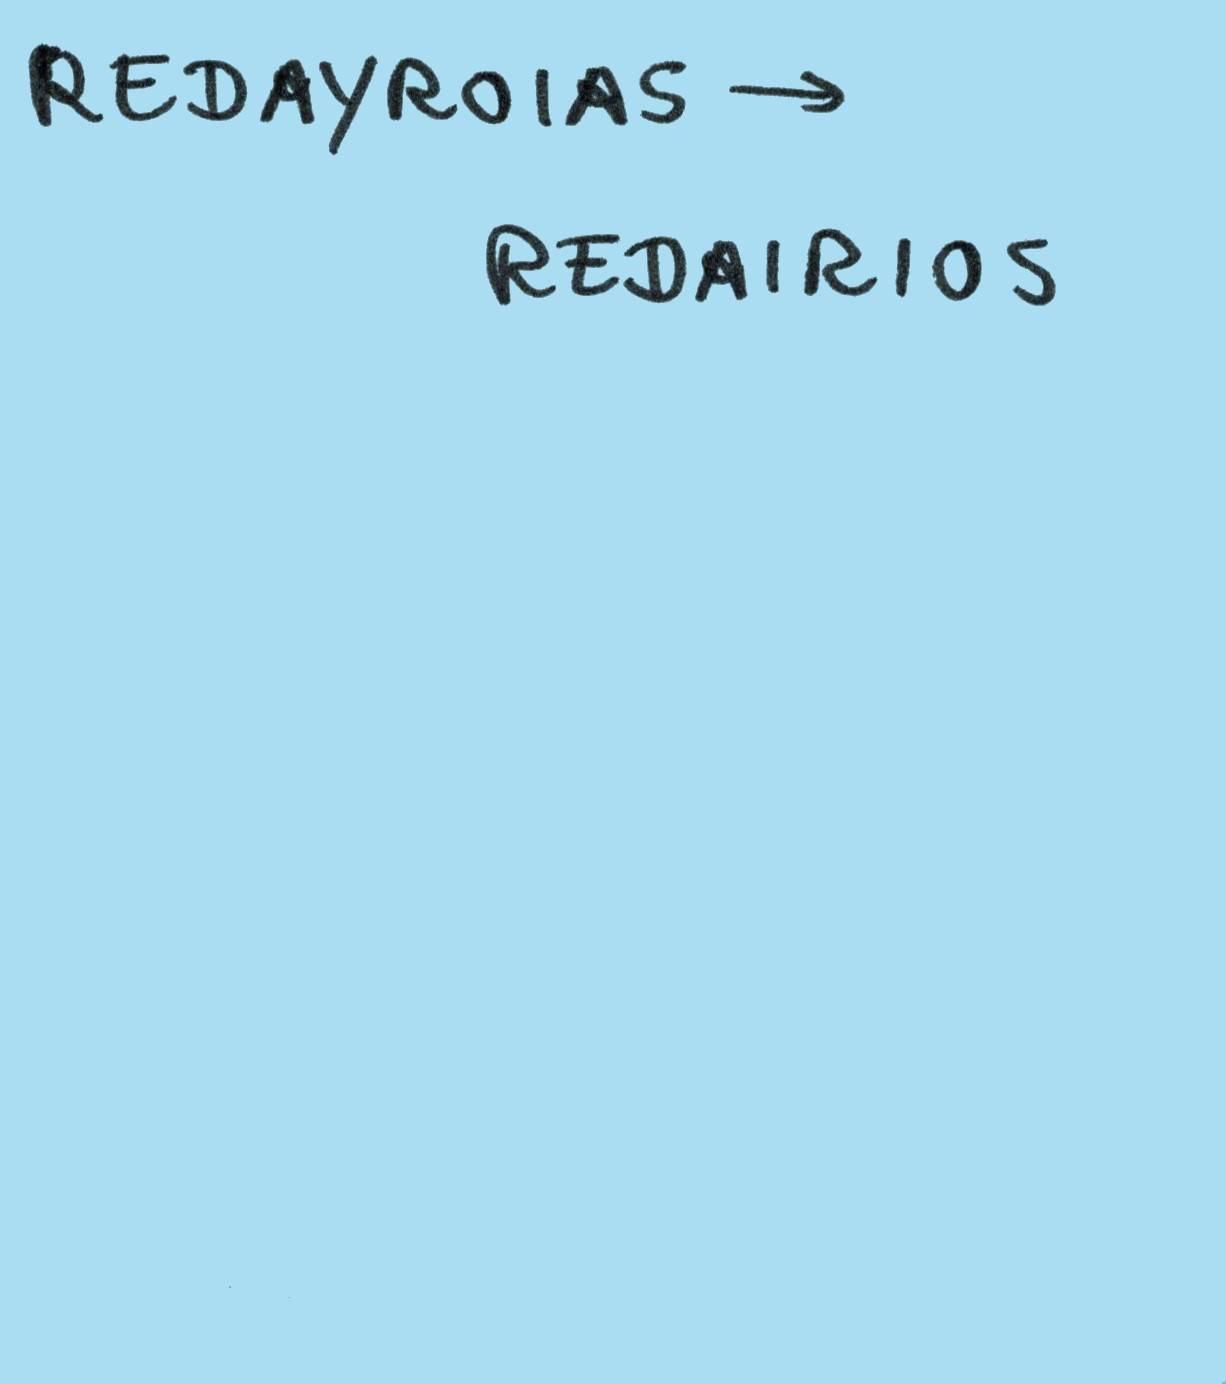 REDAYROIAS →
REDAIRIOS